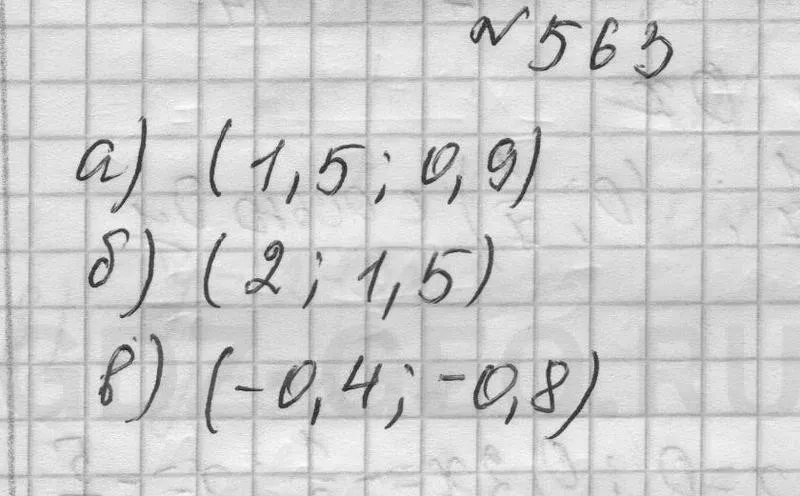 №563
а) (1,5; 0,9)
б) (2; 1,5)
в) (-0,4; -0,8)